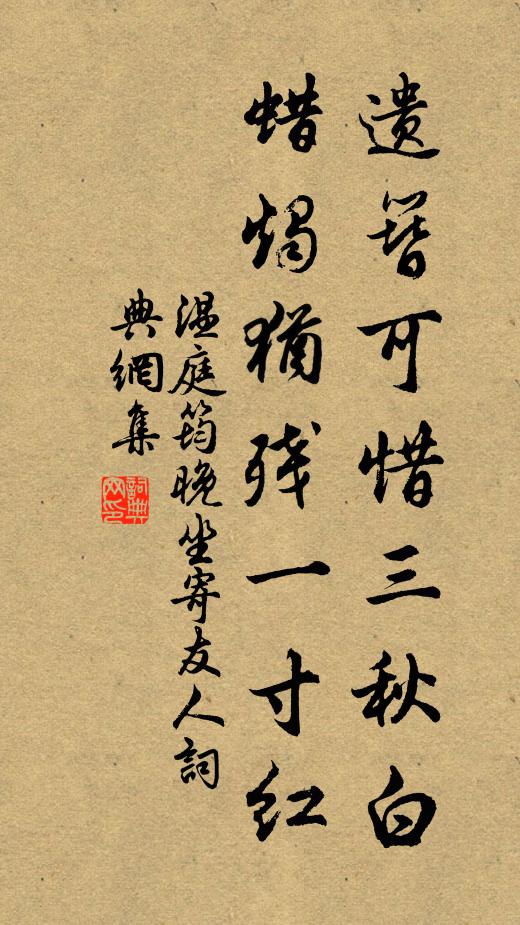 遗簪可惜三秋白
蜡烛犹残一寸红
温庭筠晚坐寄友人词
典網集
詞典
网印